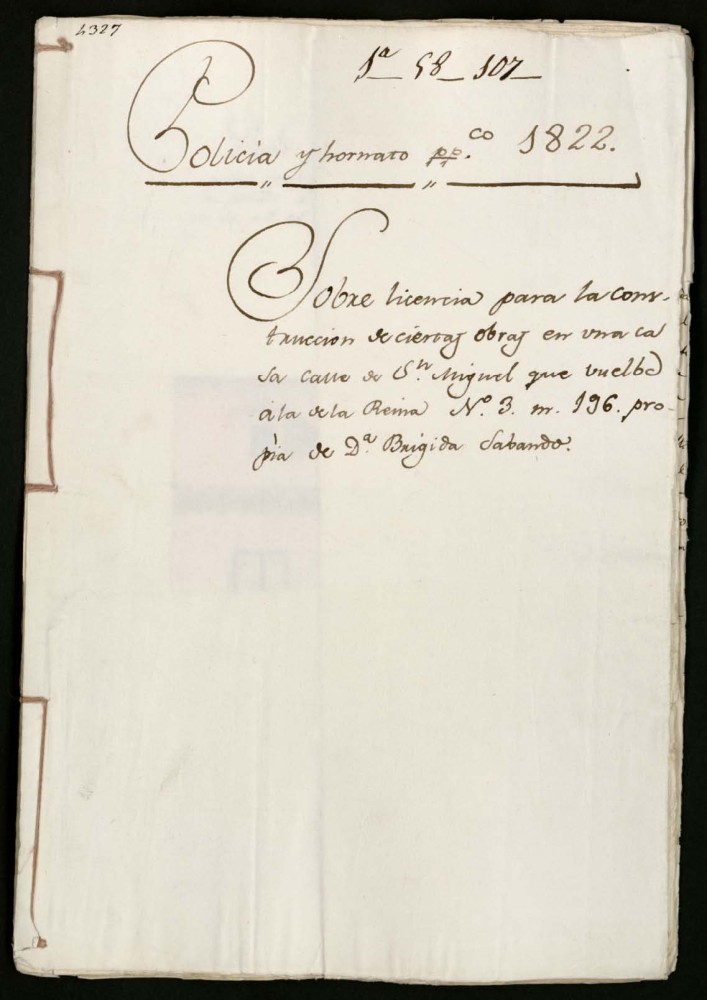 4327
1ª 58 107
Policia y hornato pp.co 1822.
Sobre licencia para la cons-
truccion de ciertas obras en una ca
sa calle de Sn. Miguel que vuelbe
á la de la Reina Nº. 3. m. 196. pro-
pia de Dª. Brigida Sabando.